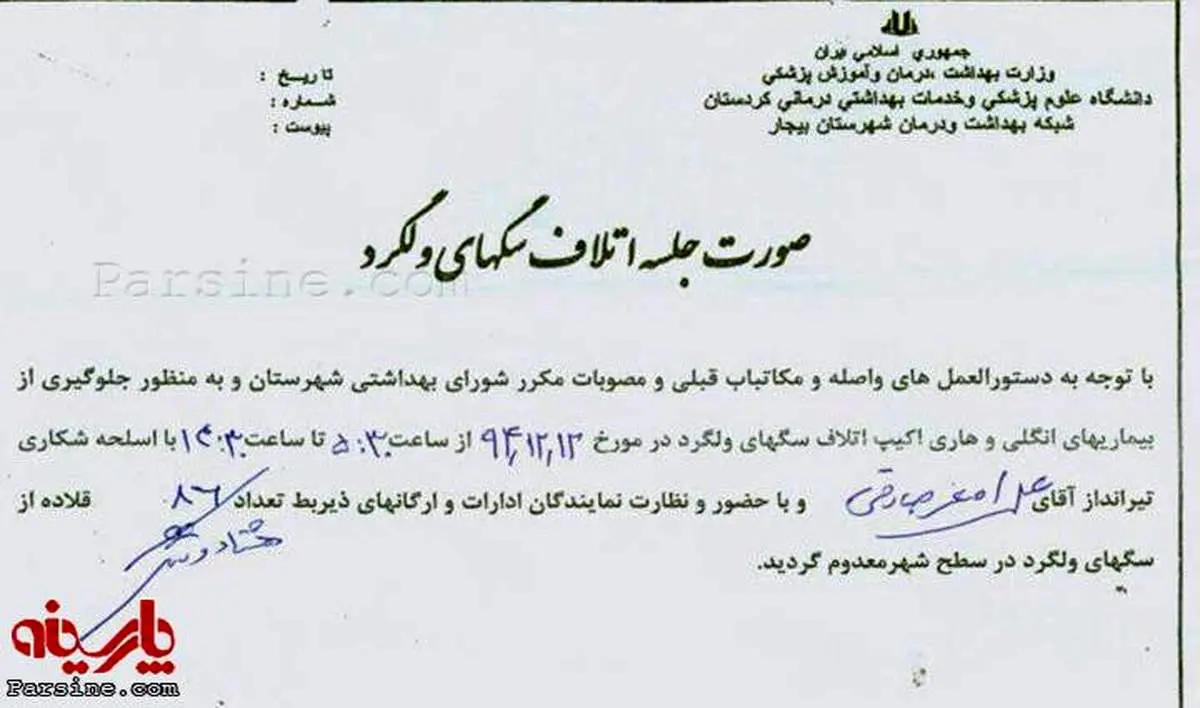 جمهوري اسلامي ايران
وزارت بهداشت ،درمان وآموزش پزشكي
دانشگاه علوم پزشكي وخدمات بهداشتي درماني كردستان
شبكه بهداشت ودرمان شهرستان بيجار
تاريخ :
شماره :
پيوست :
صورت جلسه اتلاف سگهای ولگرد
Parsine.com
با توجه به دستورالعمل های واصله و مکاتباب قبلی و مصوبات مکرر شورای بهداشتی شهرستان و به منظور جلوگیری از
بیماریهای انگلی و هاری اکیپ اتلاف سگهای ولگرد در مورخ ۹۴,۱۲,۱۲ از ساعت ۵:۳۰ تا ساعت با اسلحه شکاری
تیرانداز آقای علی اصغر صادقی و با حضور و نظارت نمایندگان ادارات و ارگانهای ذیربط تعداد ۸۶ قلاده از
هشتاد و شش
سگهای ولگرد در سطح شهرمعدوم گردید.
پارسینه
Parsine.com